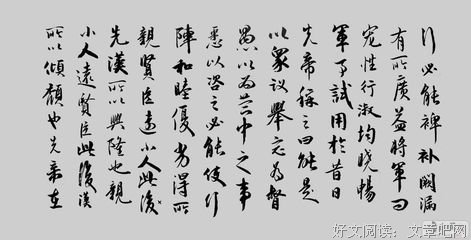 行必能裨補闕漏
有所廣益將軍向
寵性行淑均曉暢
軍事試用於昔日
先帝稱之曰能是
以衆議舉寵為督
愚以為營中之事
悉以咨之必能使行
陣和睦優劣得所
親賢臣遠小人此後
先漢所以興隆也親
小人遠賢臣此後漢
所以傾頹也先帝在
好文阅读：文章吧网